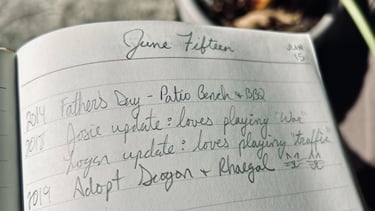 June Fifteen
JUN
15
2014 Father's Day - Patio Bench & BBQ
2018 Josie update: loves playing "War"
Logan update: loves playing "traffic"
2019 Adopt Drogon & Rhaegal